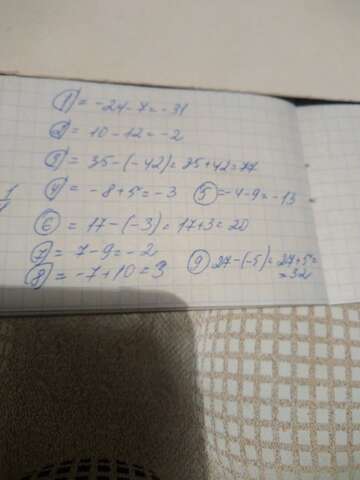 1) = -24-7=-31
2) = 10-12=-2
3) = 35-(-42)=35+42=77
4) = -8+5=-3 5) =-4-9=-13
6) = 17-(-3)=17+3=20
7) = 7-9=-2
8) = -7+10=3 9) 27-(-5)=27+5=
=32